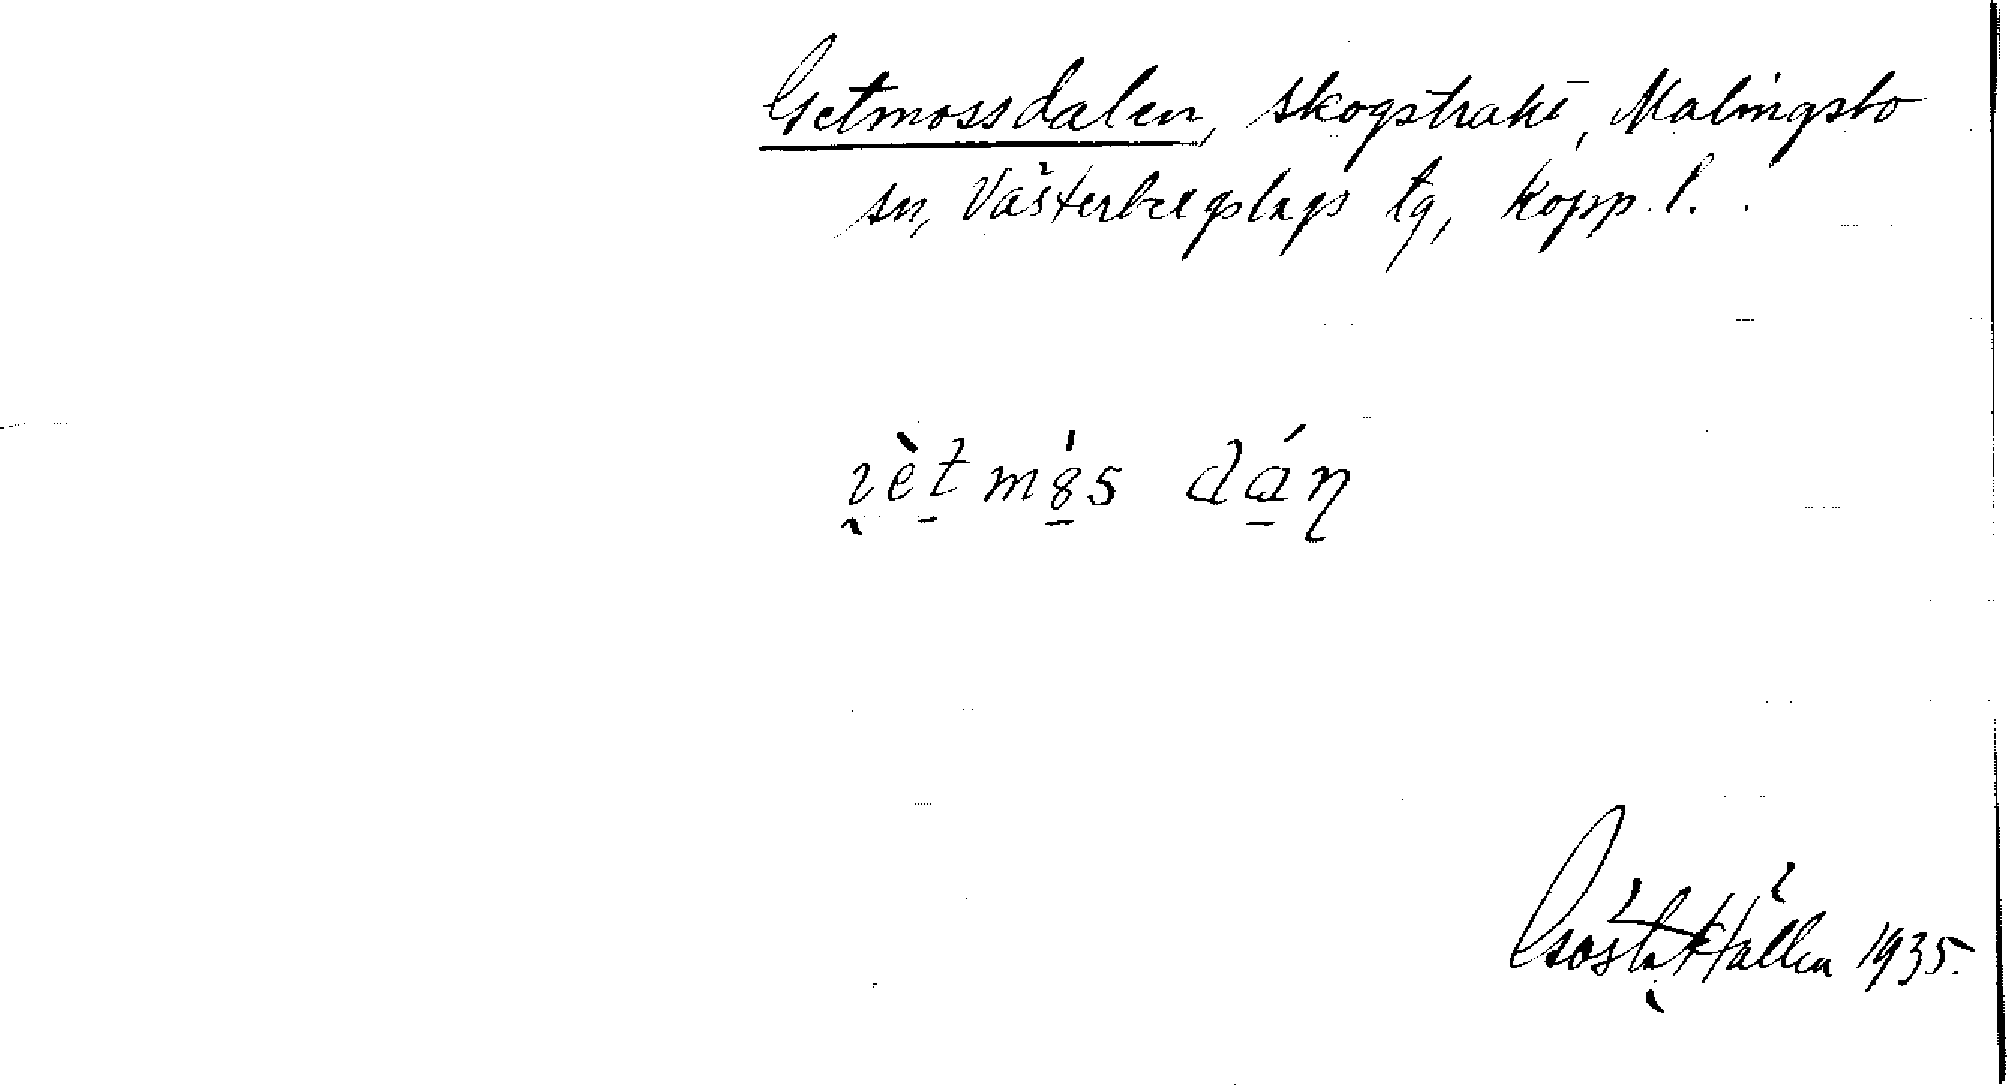 Getmossdalen, skogstrakt, Malingsbo
sn, Västerbergslags tg, Kopp. l.
ɿ̯èt̠ mȣ̠̍s dá̠ɳ
Gösta Hällen 1935.